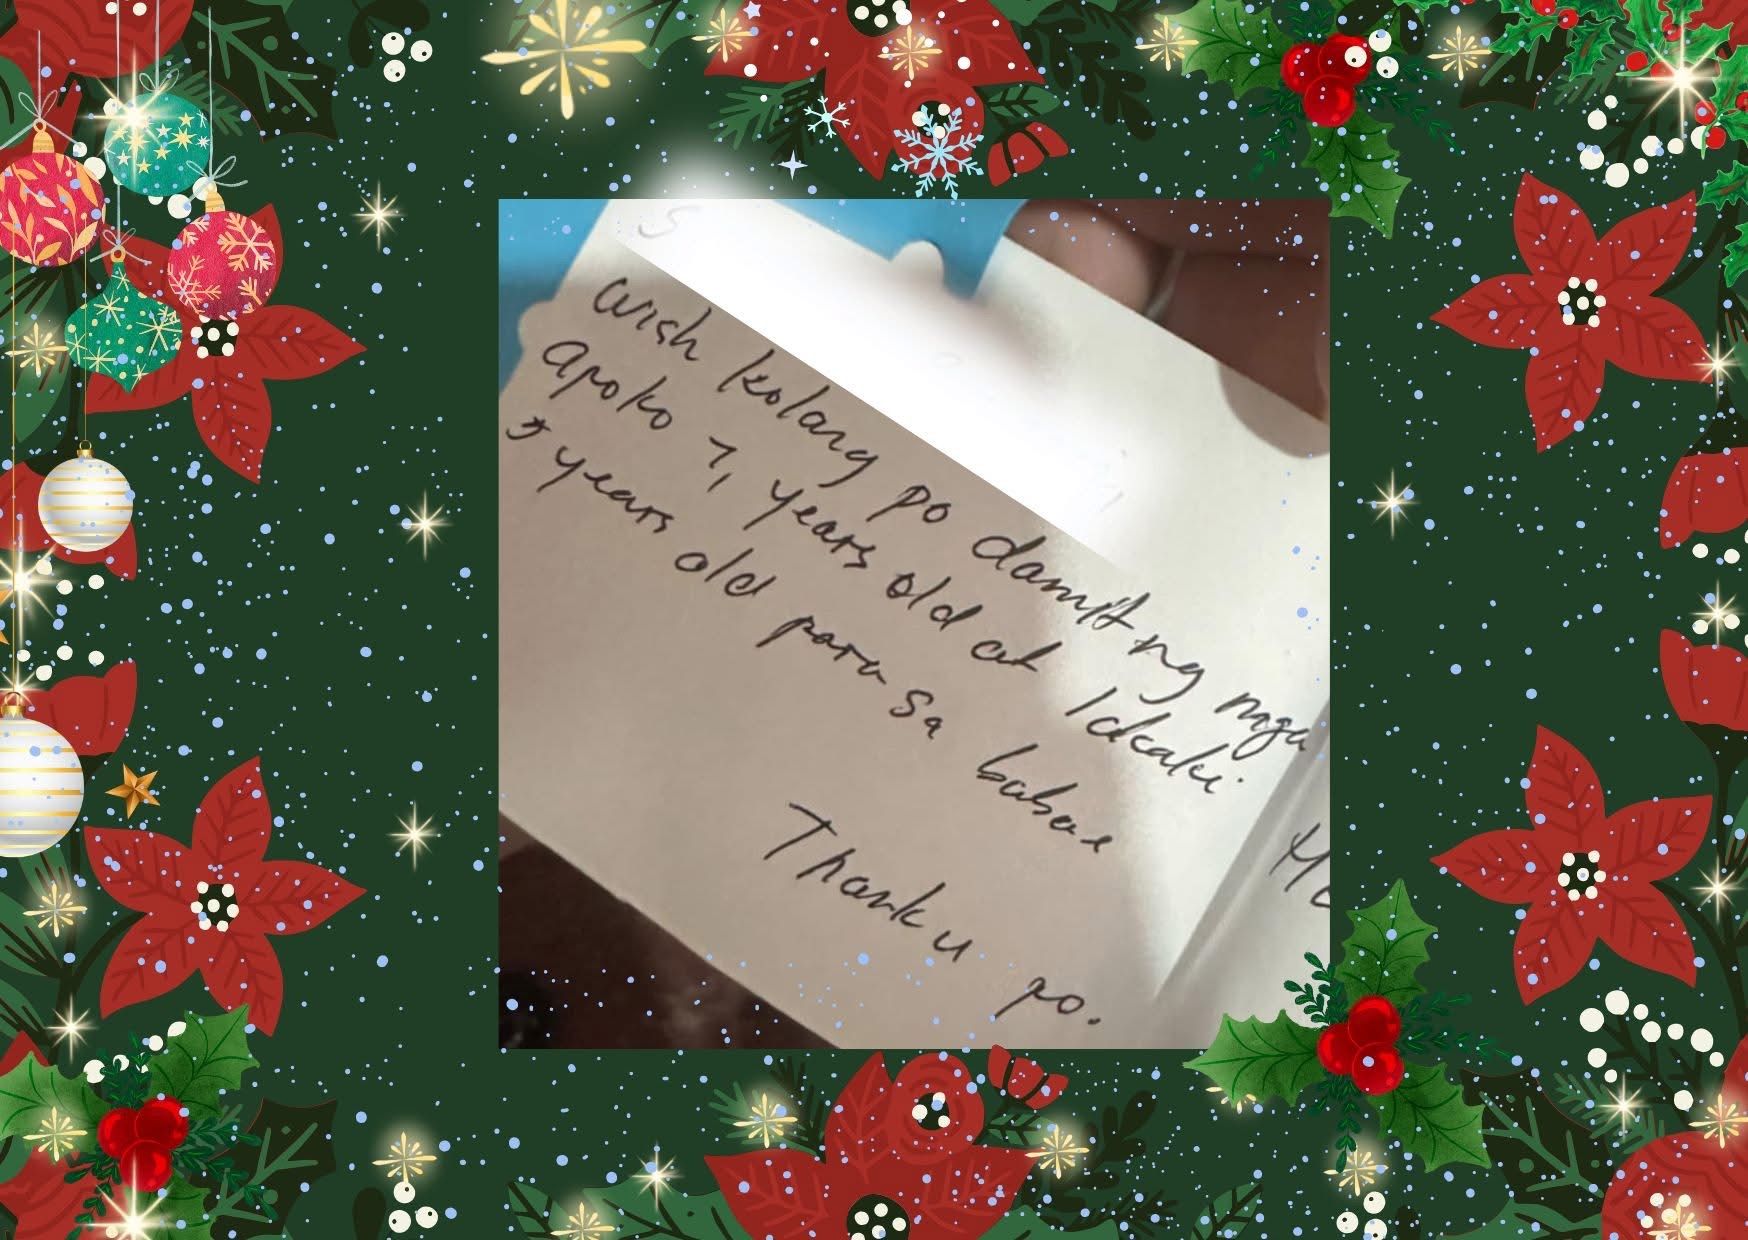 wish kolang po damit ng mga
apoko 7, years old at lalaki
5 years old para sa babae
Thank u po.